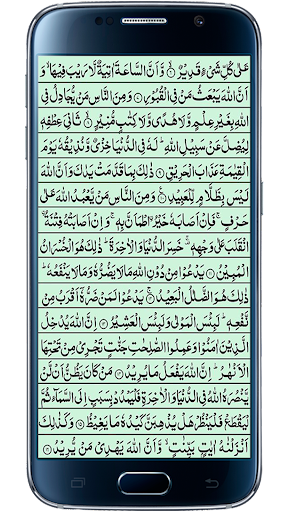 عَلٰى كُلِّ شَىْءٍ قَدِيْرٌ ۙ وَّاَنَّ السَّاعَةَ اٰتِيَةٌ لَّا رَيْبَ فِيْهَا ۙ وَ
اَنَّ اللّٰهَ يَبْعَثُ مَنْ فِى الْقُبُوْرِ ۞ وَمِنَ النَّاسِ مَنْ يُّجَادِلُ فِى
اللّٰهِ بِغَيْرِ عِلْمٍ وَّلَا هُدًى وَّلَا كِتٰبٍ مُّنِيْرٍ ۙ ثَانِىَ عِطْفِهٖ
لِيُضِلَّ عَنْ سَبِيْلِ اللّٰهِ ؕ لَهٗ فِى الدُّنْيَا خِزْىٌ وَّنُذِيْقُهٗ يَوْمَ
الْقِيٰمَةِ عَذَابَ الْحَرِيْقِ ۞ ذٰلِكَ بِمَا قَدَّمَتْ يَدٰكَ وَاَنَّ اللّٰهَ
لَيْسَ بِظَلَّامٍ لِّلْعَبِيْدِ ۞ وَمِنَ النَّاسِ مَنْ يَّعْبُدُ اللّٰهَ عَلٰى
حَرْفٍ ۚ فَاِنْ اَصَابَهٗ خَيْرُ اۨطْمَاَنَّ بِهٖ ۚ وَاِنْ اَصَابَتْهُ فِتْنَةُ اۨ
انْقَلَبَ عَلٰى وَجْهِهٖ ۚ خَسِرَ الدُّنْيَا وَالْاٰخِرَةَ ؕ ذٰلِكَ هُوَ الْخُسْرَانُ
الْمُبِيْنُ ۞ يَدْعُوْا مِنْ دُوْنِ اللّٰهِ مَا لَا يَضُرُّهٗ وَمَا لَا يَنْفَعُهٗ ؕ
ذٰلِكَ هُوَ الضَّلٰلُ الْبَعِيْدُ ۞ يَدْعُوْا لَمَنْ ضَرُّهٗۤ اَقْرَبُ مِنْ
نَّفْعِهٖ ؕ لَبِئْسَ الْمَوْلٰى وَلَبِئْسَ الْعَشِيْرُ ۞ اِنَّ اللّٰهَ يُدْخِلُ
الَّذِيْنَ اٰمَنُوْا وَعَمِلُوا الصّٰلِحٰتِ جَنّٰتٍ تَجْرِىْ مِنْ تَحْتِهَا
الْاَنْهٰرُ ؕ اِنَّ اللّٰهَ يَفْعَلُ مَا يُرِيْدُ ۞ مَنْ كَانَ يَظُنُّ اَنْ لَّنْ
يَّنْصُرَهُ اللّٰهُ فِى الدُّنْيَا وَالْاٰخِرَةِ فَلْيَمْدُدْ بِسَبَبٍ اِلَى السَّمَآءِ ثُمَّ
لْيَقْطَعْ فَلْيَنْظُرْ هَلْ يُذْهِبَنَّ كَيْدُهٗ مَا يَغِيْظُ ۞ وَكَذٰلِكَ
اَنْزَلْنٰهُ اٰيٰتٍۭ بَيِّنٰتٍ ۙ وَّاَنَّ اللّٰهَ يَهْدِىْ مَنْ يُّرِيْدُ ۞